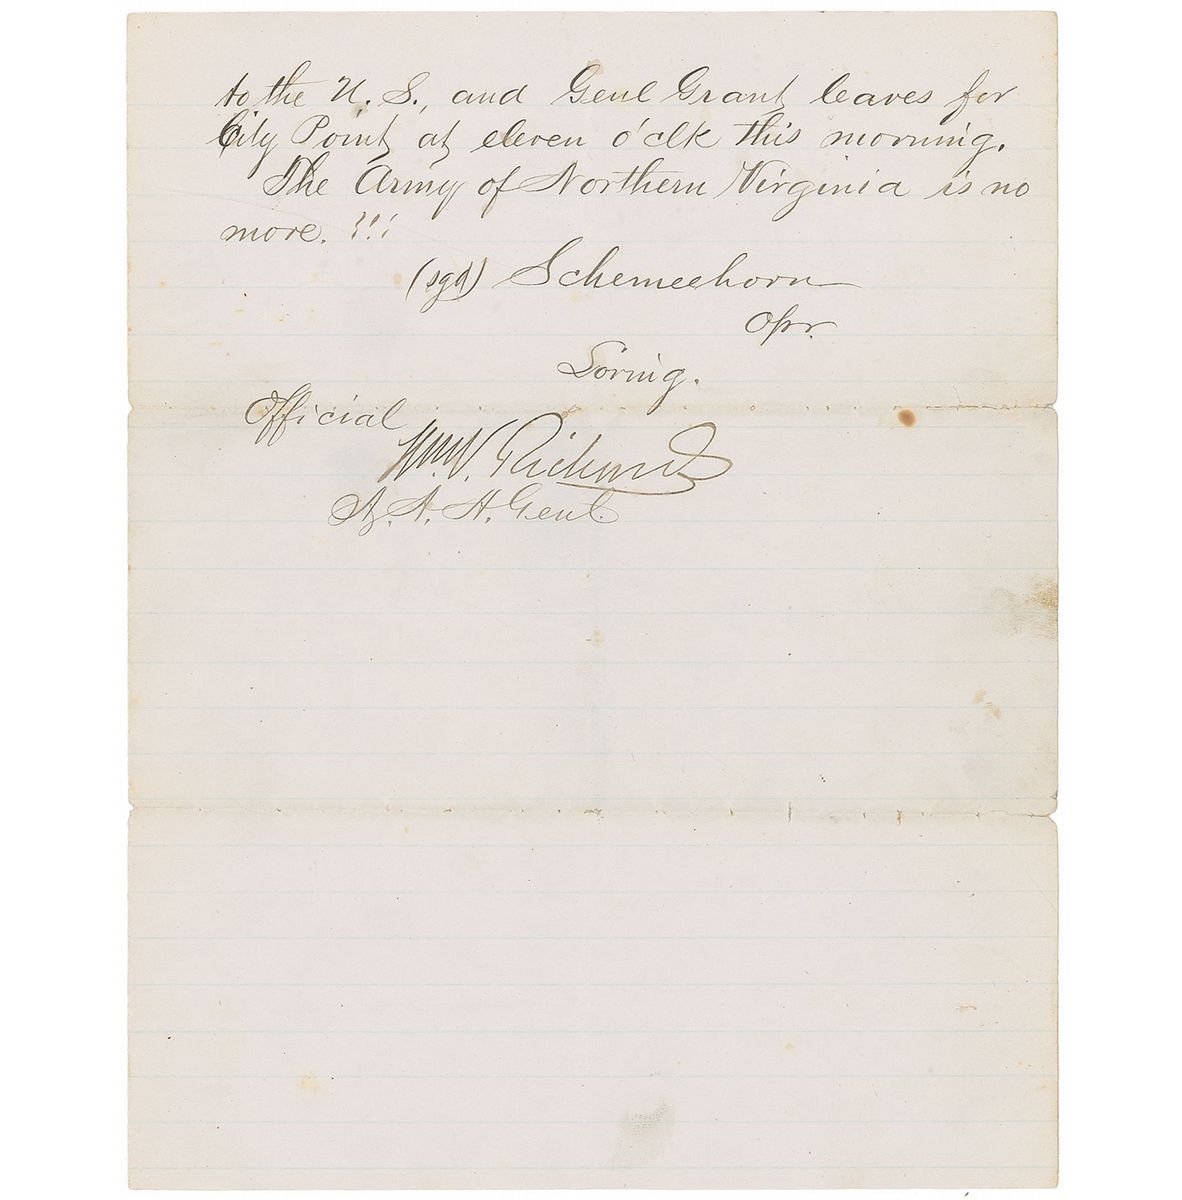 to the U. S., and Genl Grant leaves for
City Point at eleven o'clk this morning.
The Army of Northern Virginia is no
more. !!!
(sgd) Schemeehorn
Opr.
Loring.
Official
Wm. V. Richards
A. A. A. Genl.